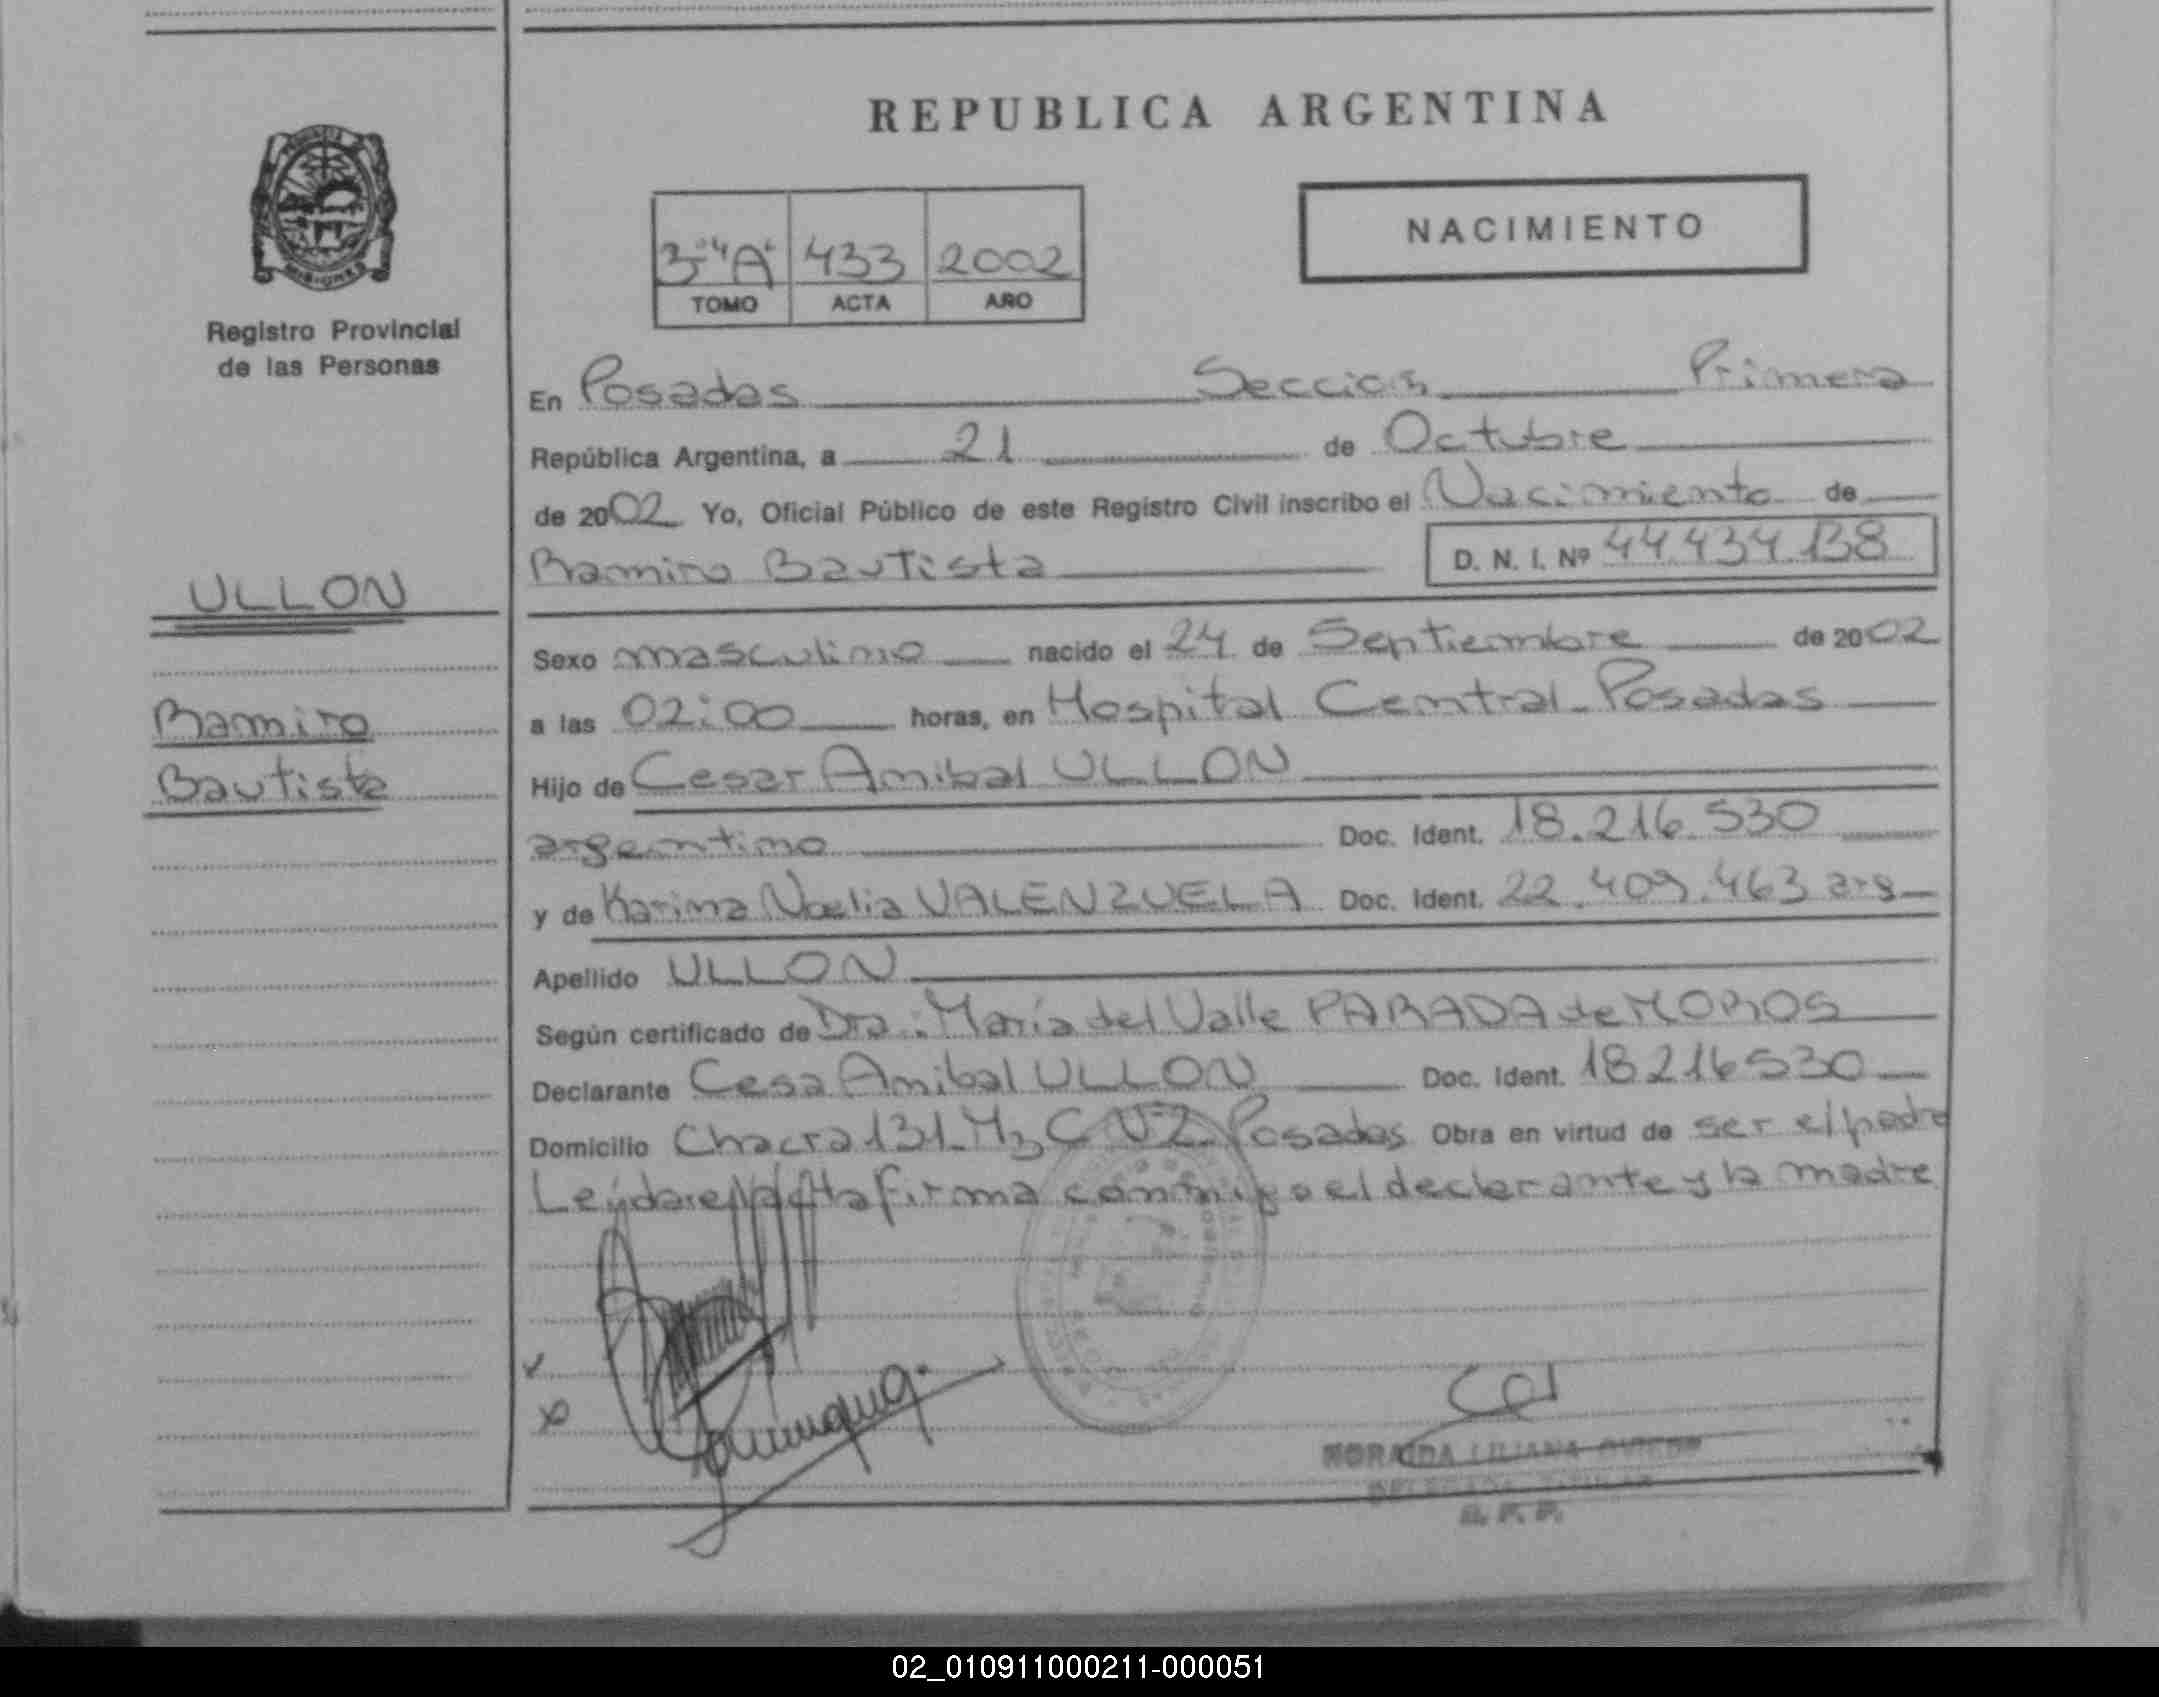 REPUBLICA ARGENTINA
3º "A" 433 2002
TOMO ACTA AÑO
NACIMIENTO
Registro Provincial
de las Personas
ULLON
Ramiro
Bautista
En Posadas Seccion Primera
República Argentina, a 21 de Octubre
de 2002 Yo, Oficial Público de este Registro Civil inscribo el Nacimiento de
Ramiro Bautista D. N. I. Nº 44.434.138
Sexo masculino nacido el 24 de Septiembre de 2002
a las 02:00 horas, en Hospital Central - Posadas
Hijo de Cesar Anibal ULLON
argentino Doc. Ident. 18.216.530
y de Karina Noelia VALENZUELA Doc. Ident. 22.409.463 arg
Apellido ULLON
Según certificado de Dra.: María del Valle PARADA de MOROS
Declarante Cesa Anibal ULLON Doc. Ident. 18216530
Domicilio Chacra 131 Mz C Posadas Obra en virtud de ser el padre
Leida el acta firma conmigo el declarante y la madre
LILIANA
02_010911000211-000051